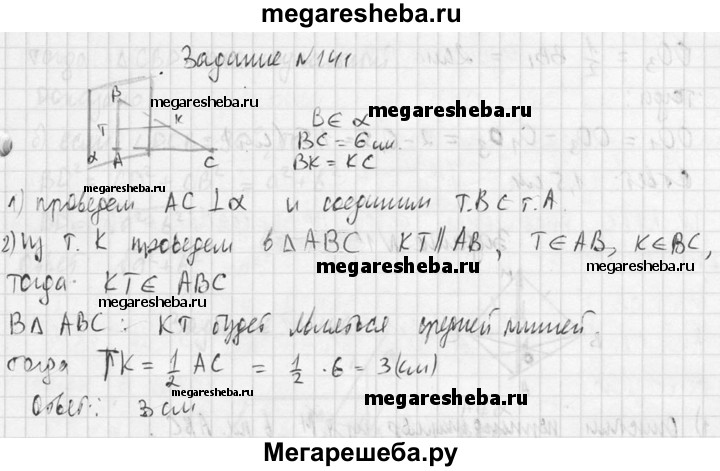 megaresheba.ru
Задание N141
B
T
K
α
A
C
megaresheba.ru
megaresheba.ru
B ∈ α
BC = 6 см.
BK = KC
megaresheba.ru
1) проведем AC ⊥ α и соединим т.B с т.A.
2) Из т. K проведем в Δ ABC KT ∥ AB, T ∈ AB, K ∈ BC,
megaresheba.ru
megaresheba.ru
тогда KT ∈ ABC
В Δ ABC: KT будет являться средней линией.
тогда TK = 1/2 AC = 1/2 · 6 = 3 (см)
megaresheba.ru
megaresheba.ru
Ответ: 3 см
megaresheba.ru
Мегарешеба.ру